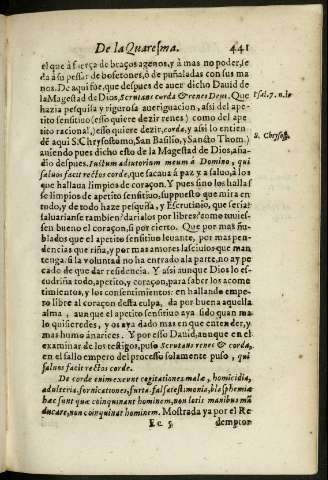 De la Quaresma. 441
el que à fuerça de braços agenos, y à mas no poder, le
dà a su pessar de bofetones, ò de puñaladas con sus ma
nos. De aqui fue, que despues de auer dicho Dauid de
la Magestad de Dios, Scrutans corda & renes Deus. Que
Psal. 7. n. 10
hazia pesquisa y rigurosa aueriguacion, assi del ape-
tito sensitiuo (esso quiere dezir renes) como del ape
tito racional, (esso quiere dezir, corda, y assi lo entien
dè aqui S. Chrysostomo, San Basilio, y Santo Thom.)
S. Chrysost.
auiendo pues dicho esto de la Magestad de Dios, aña-
dio despues, Iustum adiutorium meum à Domino, qui
saluos facit rectos corde, que sacaua à paz y a saluo, à los
que hallaua limpios de coraçon. Y pues sino los halla
se limpios de apetito sensitiuo, supuesto que mira en
todo, y de todo haze pesquisa, y Escrutinio, que seria?
saluarianse tambien? darialos por libres? como tuuies-
sen bueno el coraçon, si por cierto. Que por mas ñu-
blados que el apetito sensitiuo leuante, por mas pen-
dencias que riña, y por mas amores lasciuos que man
tenga: si la voluntad no ha entrado a la parte, no ay pe
cado de que dar residencia. Y assi aunque Dios lo es-
cudriña todo, apetito, y coraçon, para saber los acome
timientos, y los consentimientos: en hallando empe-
ro libre al coraçon desta culpa, da por buena aquella
alma, aunque el apetito sensitiuo aya sido quan ma-
lo quisieredes, y os aya dado mas en que entender, y
mas humo à narices. Y por esso Dauid, aunque en el
examinar de los testigos, puso Scrutans renes & corda,
en el fallo empero del processo solamente puso, qui
saluos facit rectos corde.
De corde enim exeunt cogitationes malæ, homicidia,
adulteria, fornicationes, furta, falsa testimonia, blasphemiæ
hæc sunt quæ coinquinant hominem, non lotis manibus mã
ducare, non coinquinat hominem. Mostrada ya por el Re
Ee 5 demptor